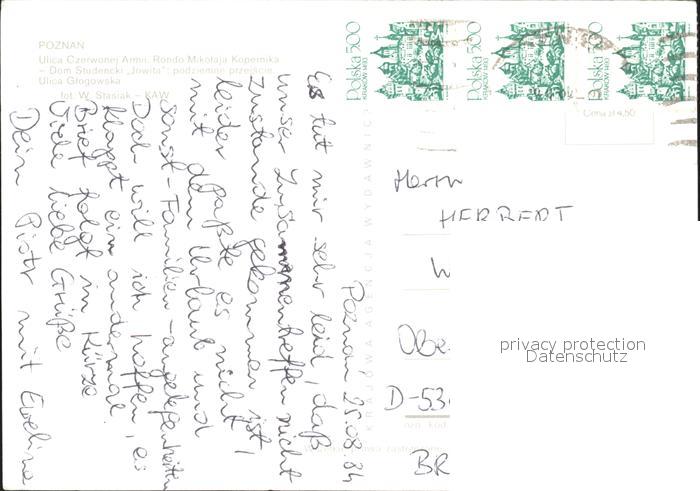 POZNAŃ
Ulica Czerwonej Armii, Rondo Mikołaja Kopernika
– Dom Studencki „Jowita”; podziemne przejście,
Ulica Głogowska
fot. W. Stasiak – KAW
Polska 5,00
KRAKÓW
Polska 5,00
KRAKÓW
Polska 5,00
KRAKÓW
Cena zł 4,50
KRAJOWA AGENCJA WYDAWNICZA
Poznań, 25.08.84
Es tut mir sehr leid, daß
unser Zusammentreffen nicht
zustande gekommen ist,
leider paßte es nicht
mit dem Urlaub und
sonst - Familien-angelegenheiten
Doch will ich hoffen, es
klappt ein andermal.
Brief folgt in Kürze
Viele liebe Grüße
Dein Piotr mit Ewelina
Herrn
HERBERT
W
Obe
D-53
BR
privacy protection
Datenschutz